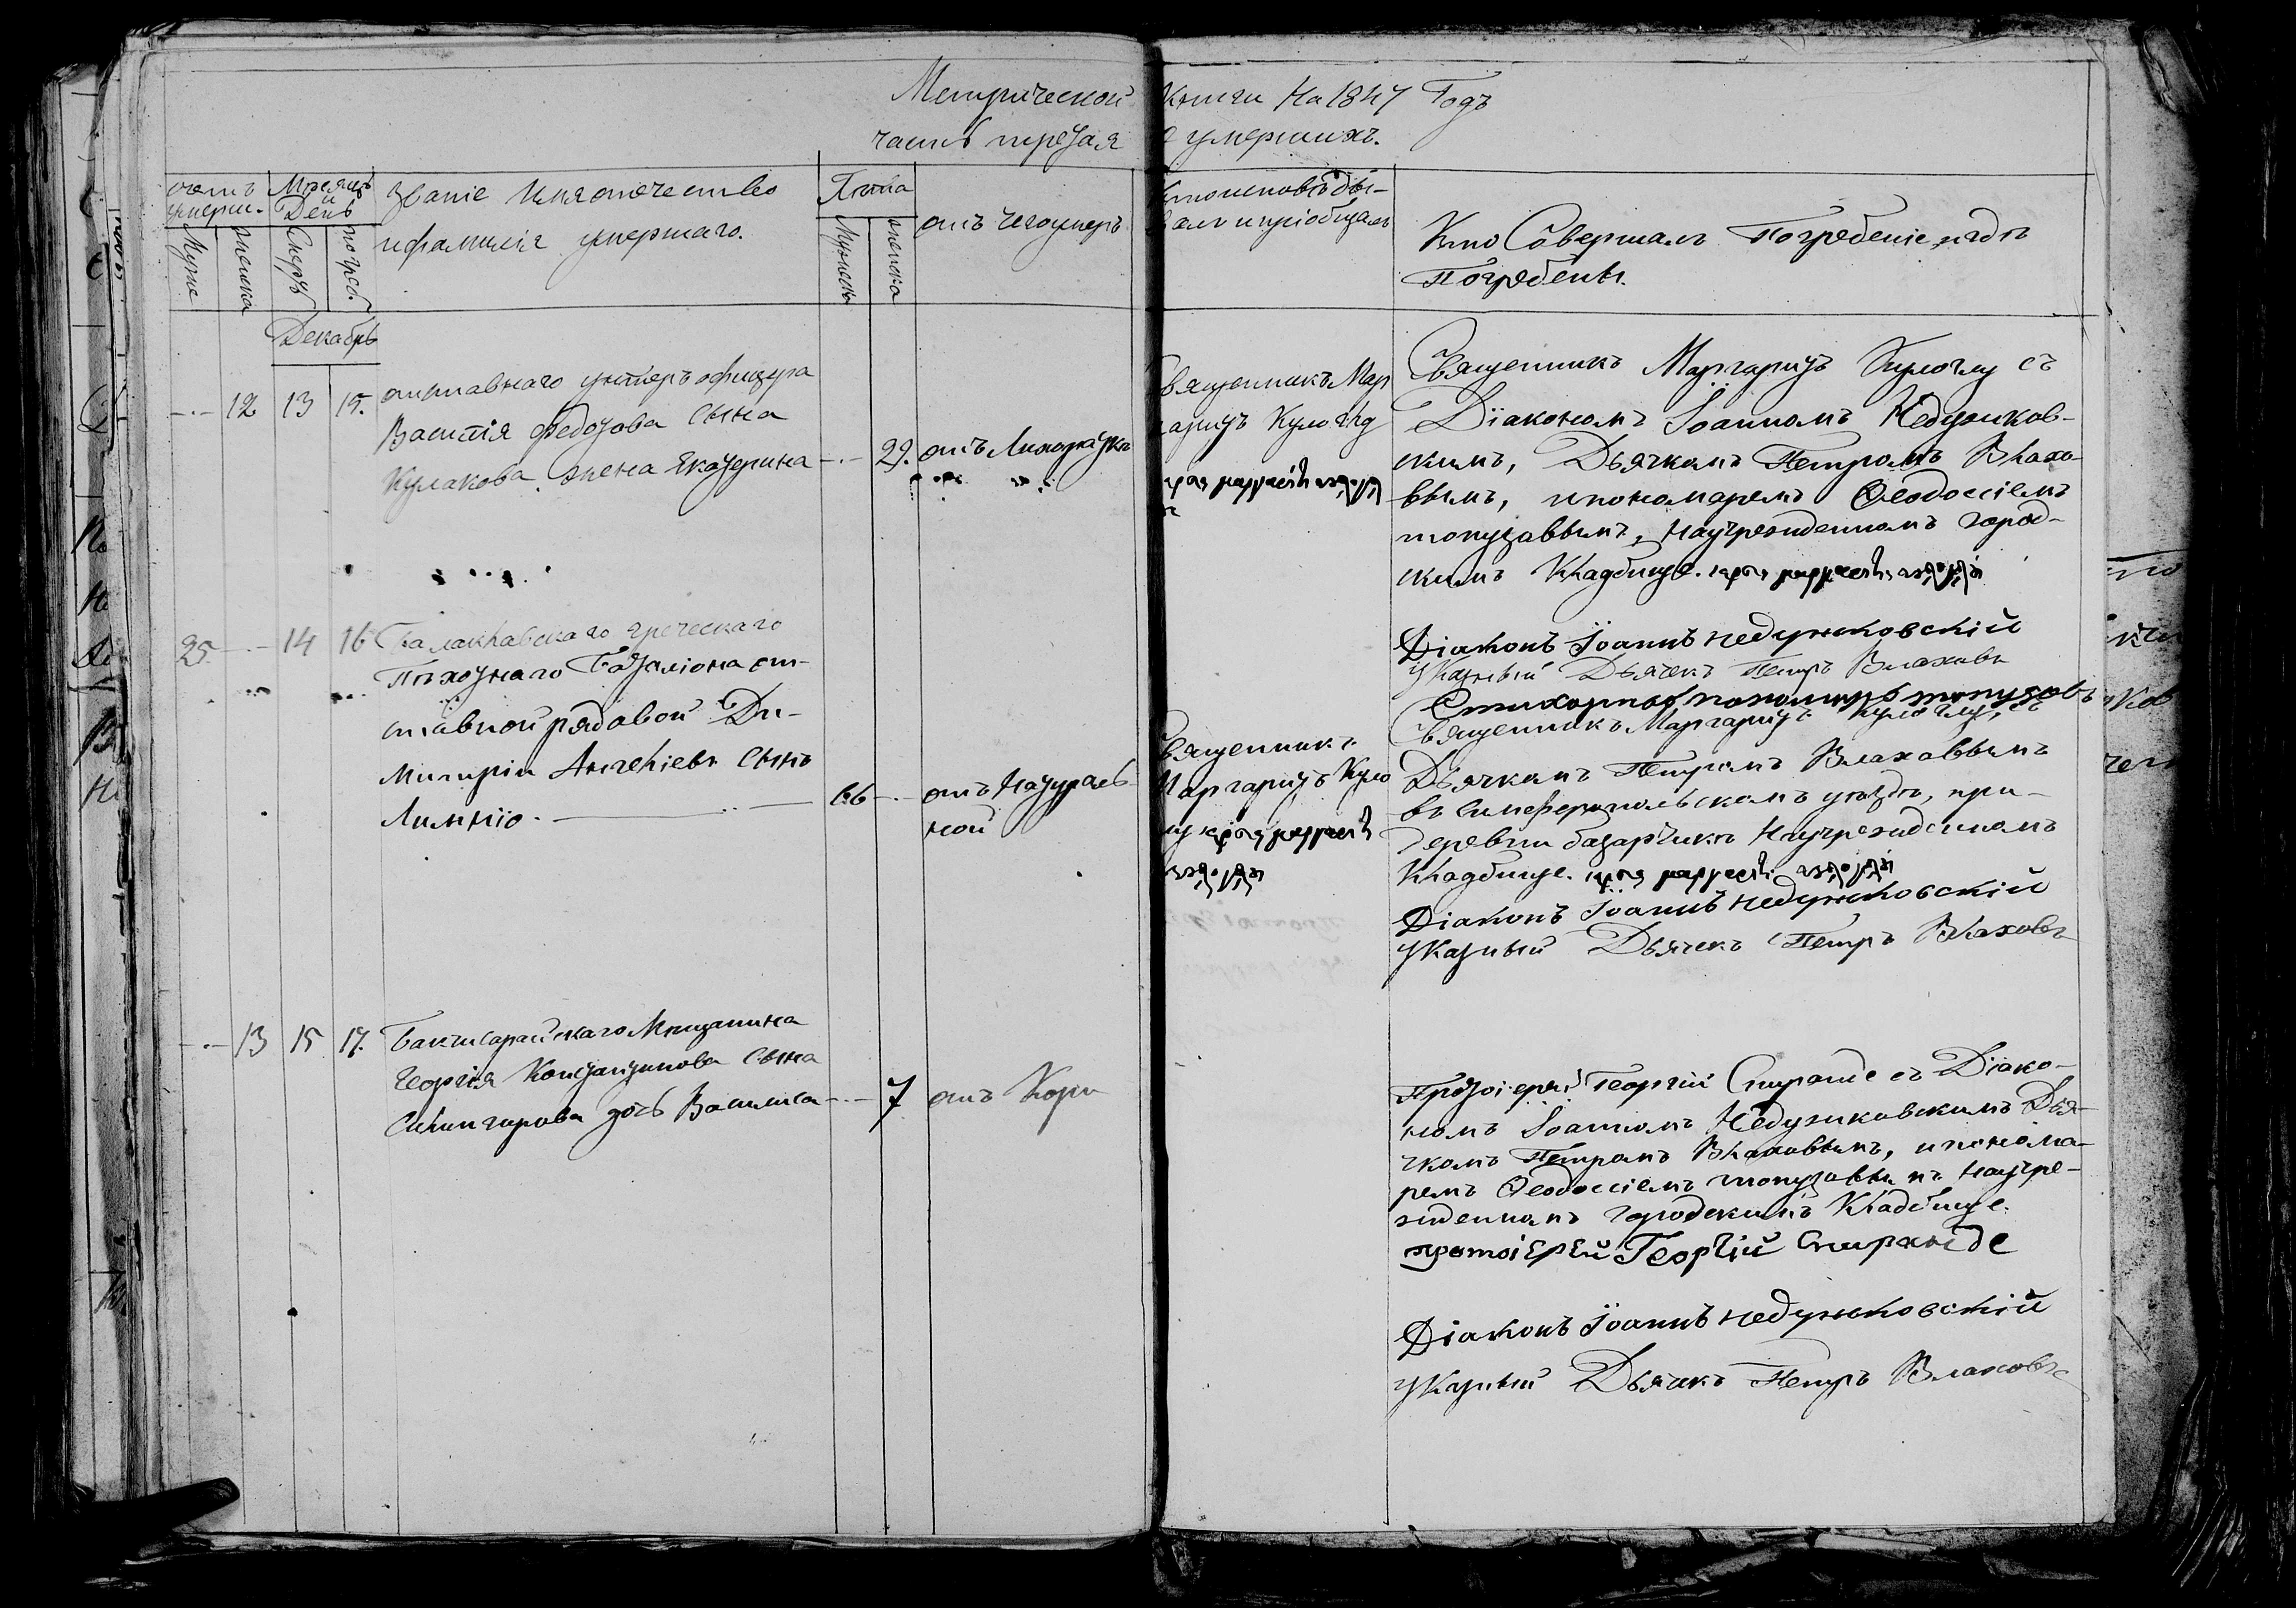 Метрической книги на 1847 Годъ
часть третая о умершихъ.
счетъ умерш.
Мужс
женска
Мѣсяцъ и День
Смерт
погреб.
Званіе Имя отечество
и фамилія умершаго.
Лѣта
Мужеск
женска
отъ чего умеръ
Кто исповѣды-
валъ и пріобщалъ
Кто Совершалъ Погребеніе, и гдѣ
Погребены.
Декабрь
-.- 12 13 15.
отставнаго унтеръ офицера
Василія Федотова Сына
Кулакова жена Екатерина -.- 29. отъ Лихорадки
Священникъ Мар
гаритъ Кулогту
Священникъ Маргаритъ Кулоглу съ
Діакономъ Іоанномъ Недужков-
скимъ, Дьячкомъ Петромъ Влахо-
вымъ, и пономаремъ Ѳеодосіемъ
топузавымъ, На учрежденномъ город-
скимъ Кладбище.
Діаконъ Іоаннъ Недужковскій
Указный Дьячекъ Петръ Влаховъ
Стихарный пономарь топузовъ
25 -.- 14 16
Балаклавскаго греческаго
Пѣхотнаго Баталіона от-
ставной рядовой Ди-
митрій Ангеліевъ Сынъ
Лимніо. 66 -.- отъ Натураль-
ной
Священникъ
Маргаритъ Куло
Священникъ Маргаритъ Кулоглу, съ
Дьячкомъ Петромъ Влахавымъ
въ Симферопольскомъ уѣздѣ, при-
деревни базарчикъ На учрежденномъ
Кладбище.
Діаконъ Іоаннъ Недужковскій
Указный Дьячекъ Петръ Влаховъ
-.- 13 15 17.
Бахчисарайскаго Мещанина
Георгія Константинова Сына
Силингарова дочь Василиса -.- 7 отъ Кори
Протоіерей Георгій Спиранде съ Діако-
номъ Іоанномъ Недужковскимъ Дья-
чкомъ Петромъ Влаховымъ, и понома-
ремъ Ѳеодосіемъ топузавымъ на учре-
жденномъ городскимъ Кладбище.
протоіерей Георгій Спиранде
Діаконъ Іоаннъ Недужковскій
Указный Дьячекъ Петръ Влаховъ